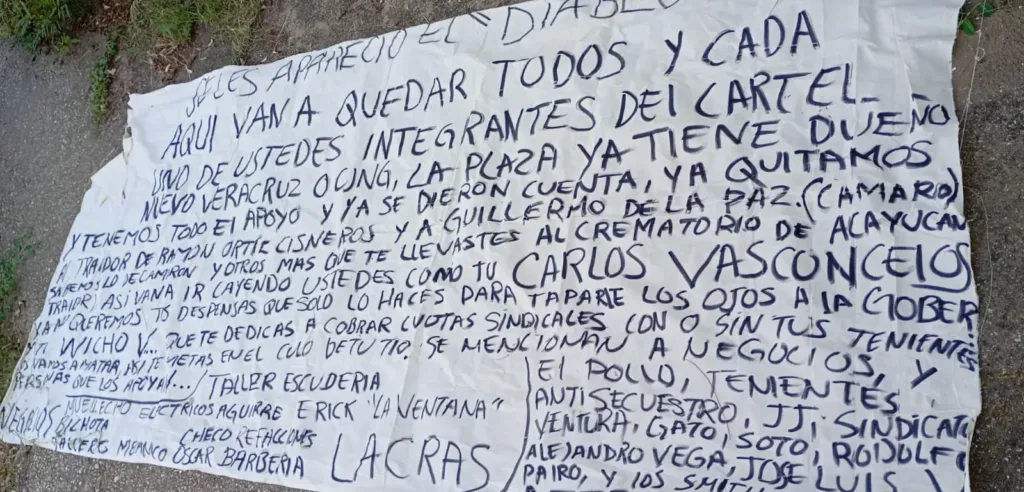 YA LES APARECIO EL "DIABLO
AQUI VAN A QUEDAR TODOS Y CADA
UNO DE USTEDES INTEGRANTES DEL CARTEL
NUEVO VERACRUZ O CJNG, LA PLAZA YA TIENE DUEÑO
Y TENEMOS TODO El APOYO Y YA SE DIERON CUENTA, YA QUITAMOS
Al TRAIDOR DE RAMON ORTIZ CISNEROS Y A GUILLERMO DE LA PAZ. (CAMARO)
SABEMOS LO DE CAMRON Y OTROS MAS QUE TE LLEVASTES AL CREMATORIO DE ACAYUCAN
TRAIDR) ASI VAN A IR CAYENDO USTEDES COMO TU CARLOS VASCONCElOS
YA N QUEREMOS TUS DESPENSAS QUE SOLO LO HACES PARA TAPARTE LOS OJOS A lA GOBER
WICHO V... QUE TE DEDICAS A COBRAR CUOTAS SINDICALES CON O SIN TUS TENIENTES
VAMOS A MATAR, ASI TE METAS EN EL CULO DE TU TIO, SE MENCIONAN A NEGOCIOS, Y
PERSNAS QUE LOS APOYAN.../ TALLER ESCUDERIA
MUELLECITO ELECTRICOS AGUIRRE ERICK "LA VENTANA"
CHECO REFACCIONS
OSCAR BARBERIA LACRAS
El POLLO, TENIENTES
ANTISECUESTRO, JJ, SINDICATO
VENTURA, GATO, SOTO, RODOLFO
ALEJANDRO VEGA, JOSE LUIS V
PAIRO, Y lOS SMITH